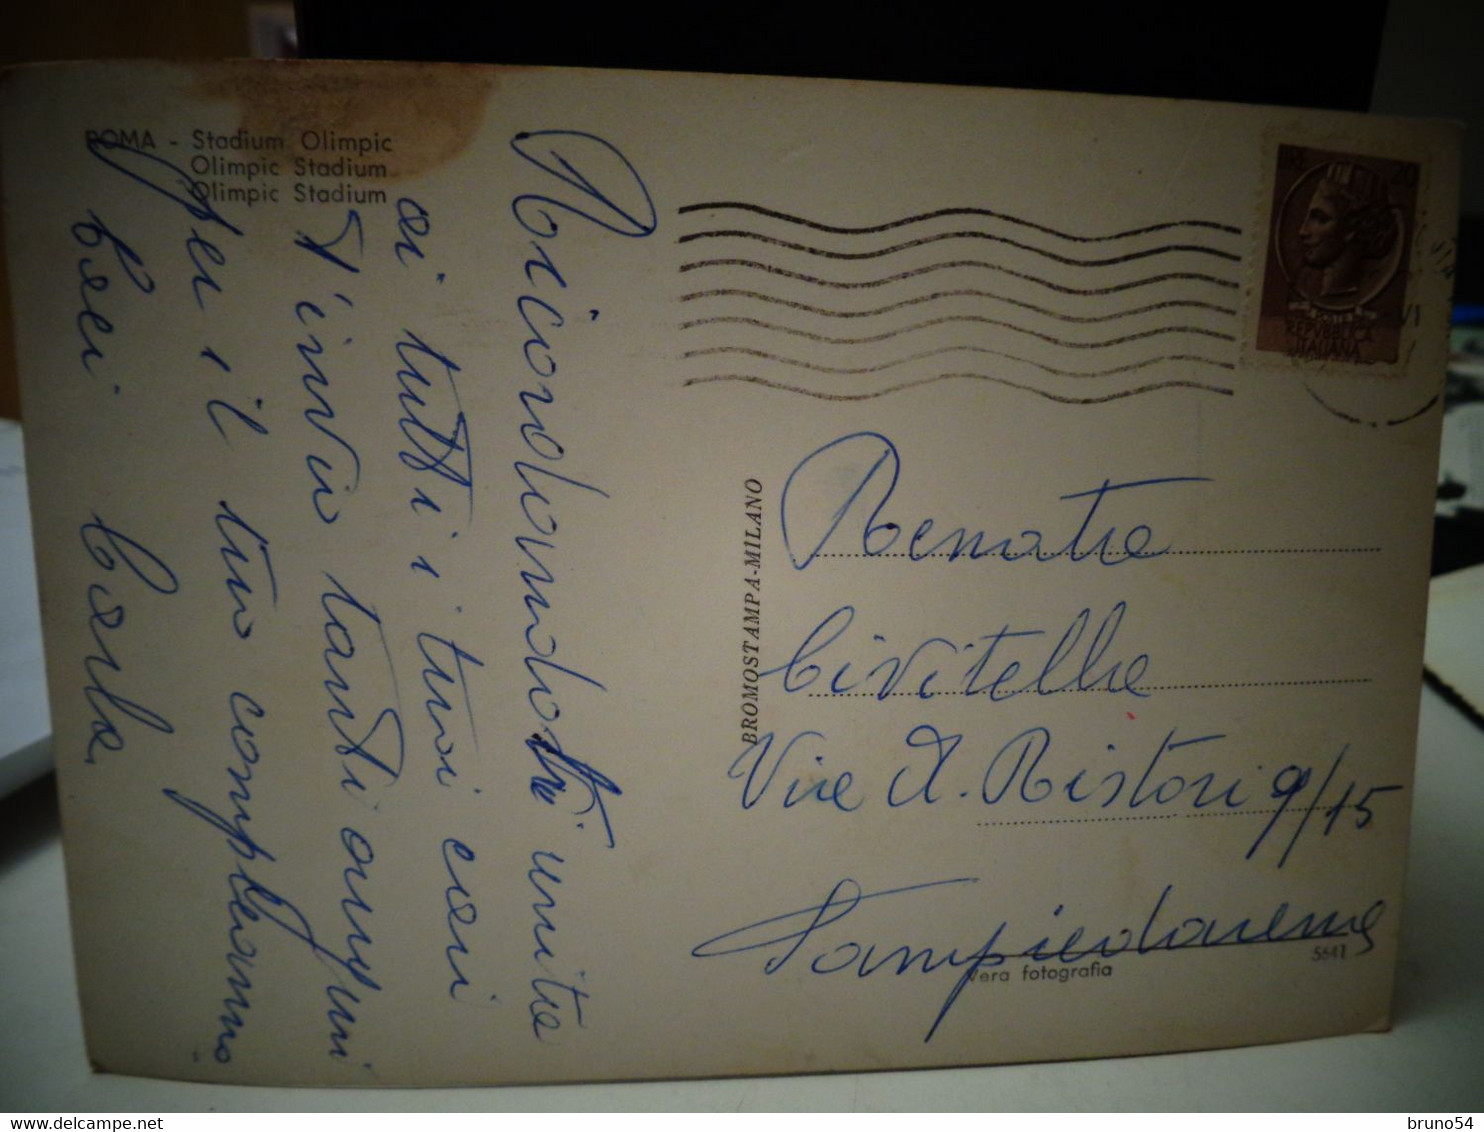 ROMA - Stadium Olimpic
Olimpic Stadium
Olimpic Stadium
Ricordandoti unita
ai tutti i tuoi cari
t'invio tanti auguri
per il tuo compleanno
baci Carla
BROMOSTAMPA-MILANO
LIRE 20
POSTE
REPVBBLICA
ITALIANA
VI
Renata
Civitella
Via A. Ristori 9/15
Sampierdarena
Vera fotografia
5641
bruno54